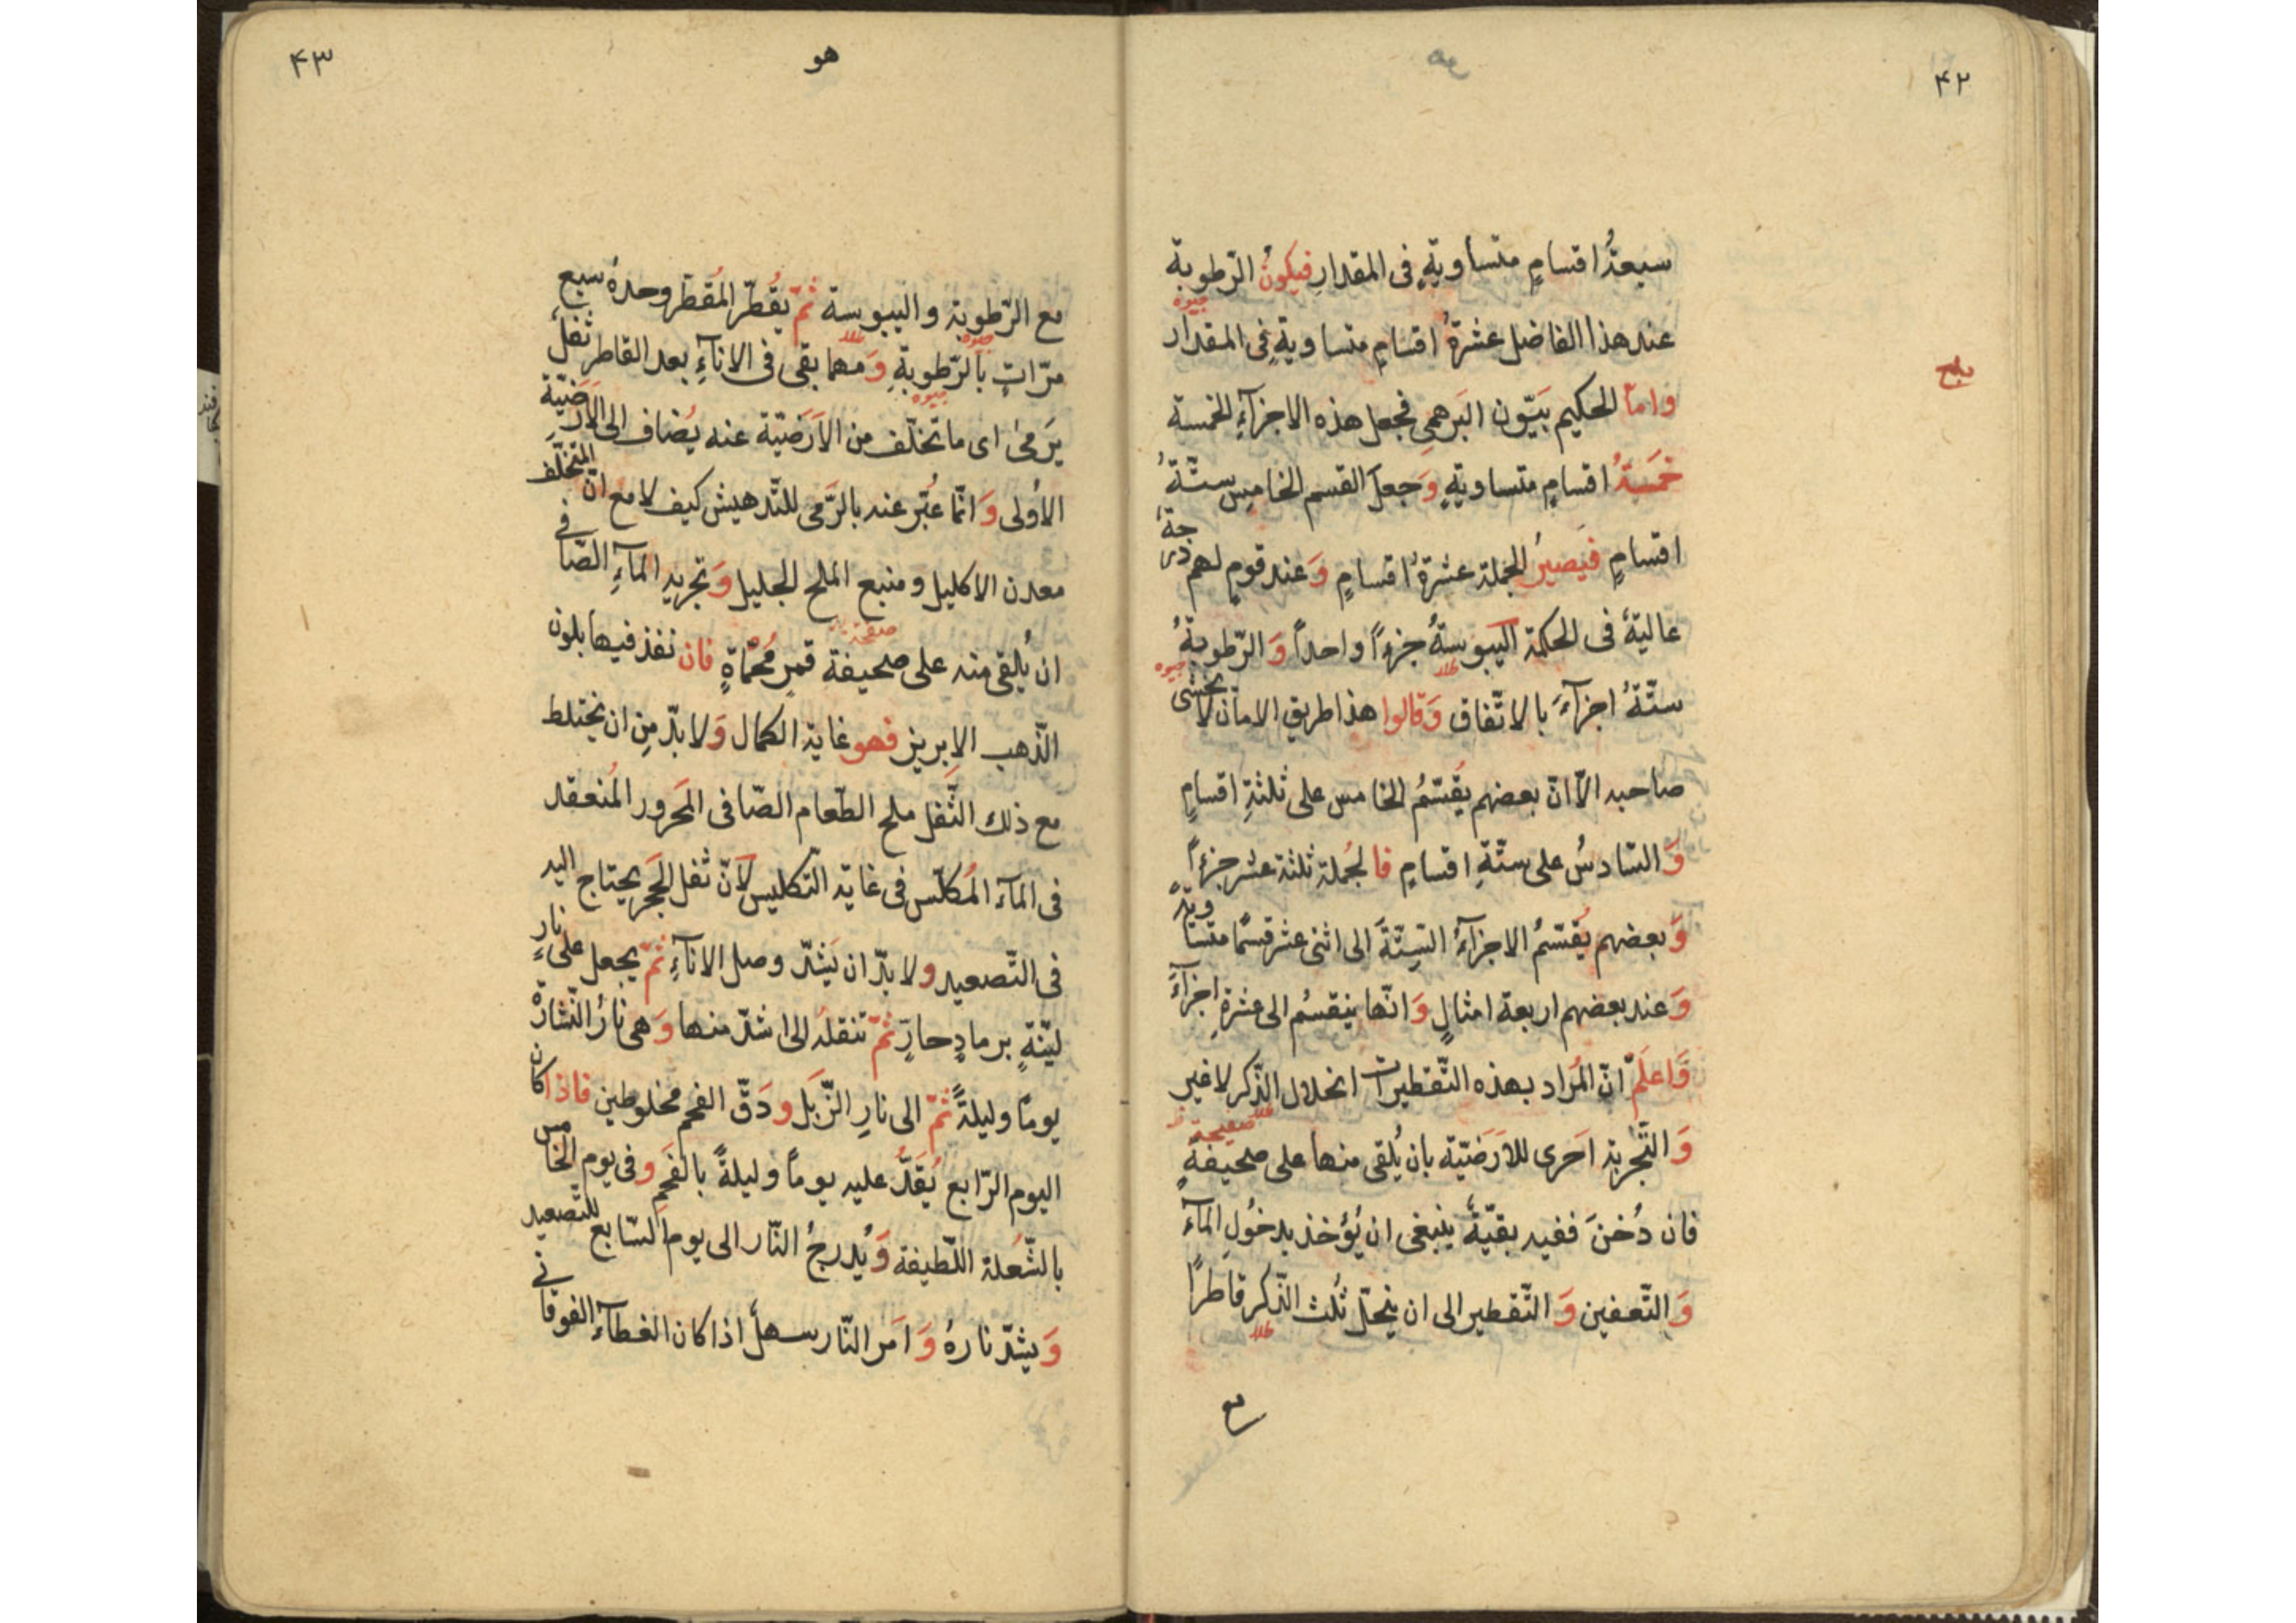 ۴۲
سبعةُ اقسامٍ متساويةٍ فى المقدارِ فيكونُ الرّطوبة
جيوه
عند هذا الفاضل عشرةُ اقسامٍ متساويةٍ فى المقدار
وامّا الحكيم بَيّون البَرهمى فجعل هذه الاجزآءِ الخمسة
خمسةُ اقسامٍ متساويةٍ وَجعلَ القسم الخامِس ستّةُ
اقسامٍ فيَصيرُ الجملة عشرةُ اقسامٍ وَعند قومٍ لهم درجةٌ
عاليةٌ فى الحكمة اليبوسةُ جزءًا واحدًا وَ الرّطوبةُ
طلا جيوه
ستّةُ اجزآءَ بالاتّفاق وَقالوا هذا طريق الامان لا يخشى
صاحبه الّا انّ بعضهم يُقسّمُ الخامس على ثلثةِ اقسامٍ
وَالسّادسُ على ستّةِ اقسامٍ فالجُملة ثلثة عشر جزءًا
وَبعضهم يُقسّمُ الاجزآءُ السِتّةَ الى اثنى عشر قسمًا متساويةً
وَعند بعضهم اربعة امثالٍ وَانّها ينقسمُ الى عشرةِ اجزآءً
وَاعلَم انّ المُراد بهذه التّقطيرات انحلال الذّكر لا غير
طلا صفيحة
وَالتّجربة اَحَرى للاَرَضيّة بان يُلقى منها على صحيفةٍ
فان دُخنَ ففيه بقيّةٌ ينبغى ان يُؤخذ بدخُولِ المآءَ
وَالتّعفين وَ التّقطير الى ان ينحلّ ثُلث الذّكر قاطرًا
طلا
مع
۴۳
هو
مع الرّطوبة و اليبوسة ثمّ يقُطّر المُقطّر وحدهُ سبع
جيوه طلا
مرّاتٍ بالرّطوبةِ وَمهما بقى فى الانآءِ بعد القاطر ثفلٌ
جيوه
يَرمىٰ اى ما تخلّف من الاَرَضيّة عنه يُضاف الى الاَرَضيّة
الاُولى وَ انّما عُبّر عنه بالرَّمى للتّدهيش كيف لا مع انّ المتخلّف
معدن الاكليل و منبع الملح الجليل وَتجريد المآءِ الصّافى
صفحة
ان يُلقى منه على صحيفة قمرٍ مُحمّاةٍ فان نفذ فيها بلون
الذّهب الاِبريز فهو غاية الكمال وَلا بدّ مِن ان يختلط
مع ذلك الثّفل ملح الطّعام الصّافى المَحرور المُنعقد
فى المآء المُكلّس فى غاية التّكليس لاَنّ ثفل الحَجَر يحتاج اليه
فى التّصعيد ولا بدّ ان يَشدّ وصل الانآءِ ثمّ يجعل على نارٍ
ليّنةٍ برمادٍ حارٍّ ثمّ تنقلهُ الى اشدّ منها وَهى نارُ النّشارة
يومًا وليلةً ثمّ الى نارِ الزّبَل و دَقّ الفحم مخلوطين فاذا كان
اليوم الرّابع يُقدُّ عليه يومًا وليلةً بالفَحمِ وفى يوم الخامس
بالشّعُلة اللّطيفة وَيُدرجُ النّار الى يوم السّابع للتّصعيد
وَيشدّ نارهُ وَ امَر النّار سهلٌ اذا كان الغطآءِ الفوقانى